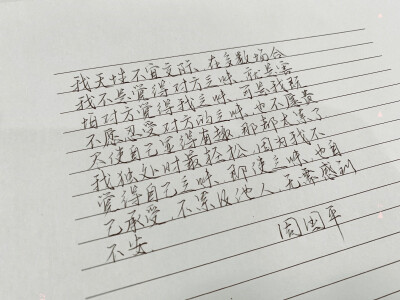 我天性不宜交际、在多数场合
我不是觉得对方乏味、就是害
怕对方觉得我乏味、可是我既
不愿忍受对方的乏味、也不愿费
大使自己显得有趣、那都太累了
我独处时最轻松、因为我不
觉得自己乏味、即使乏味、也自
己承受、不累及他人、无需感到
不安
周国平